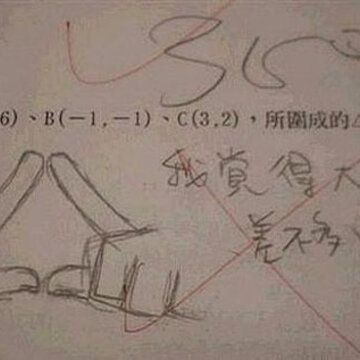 6)、B(-1,-1)、C(3,2)，所圍成的△
我覺得大
差不多